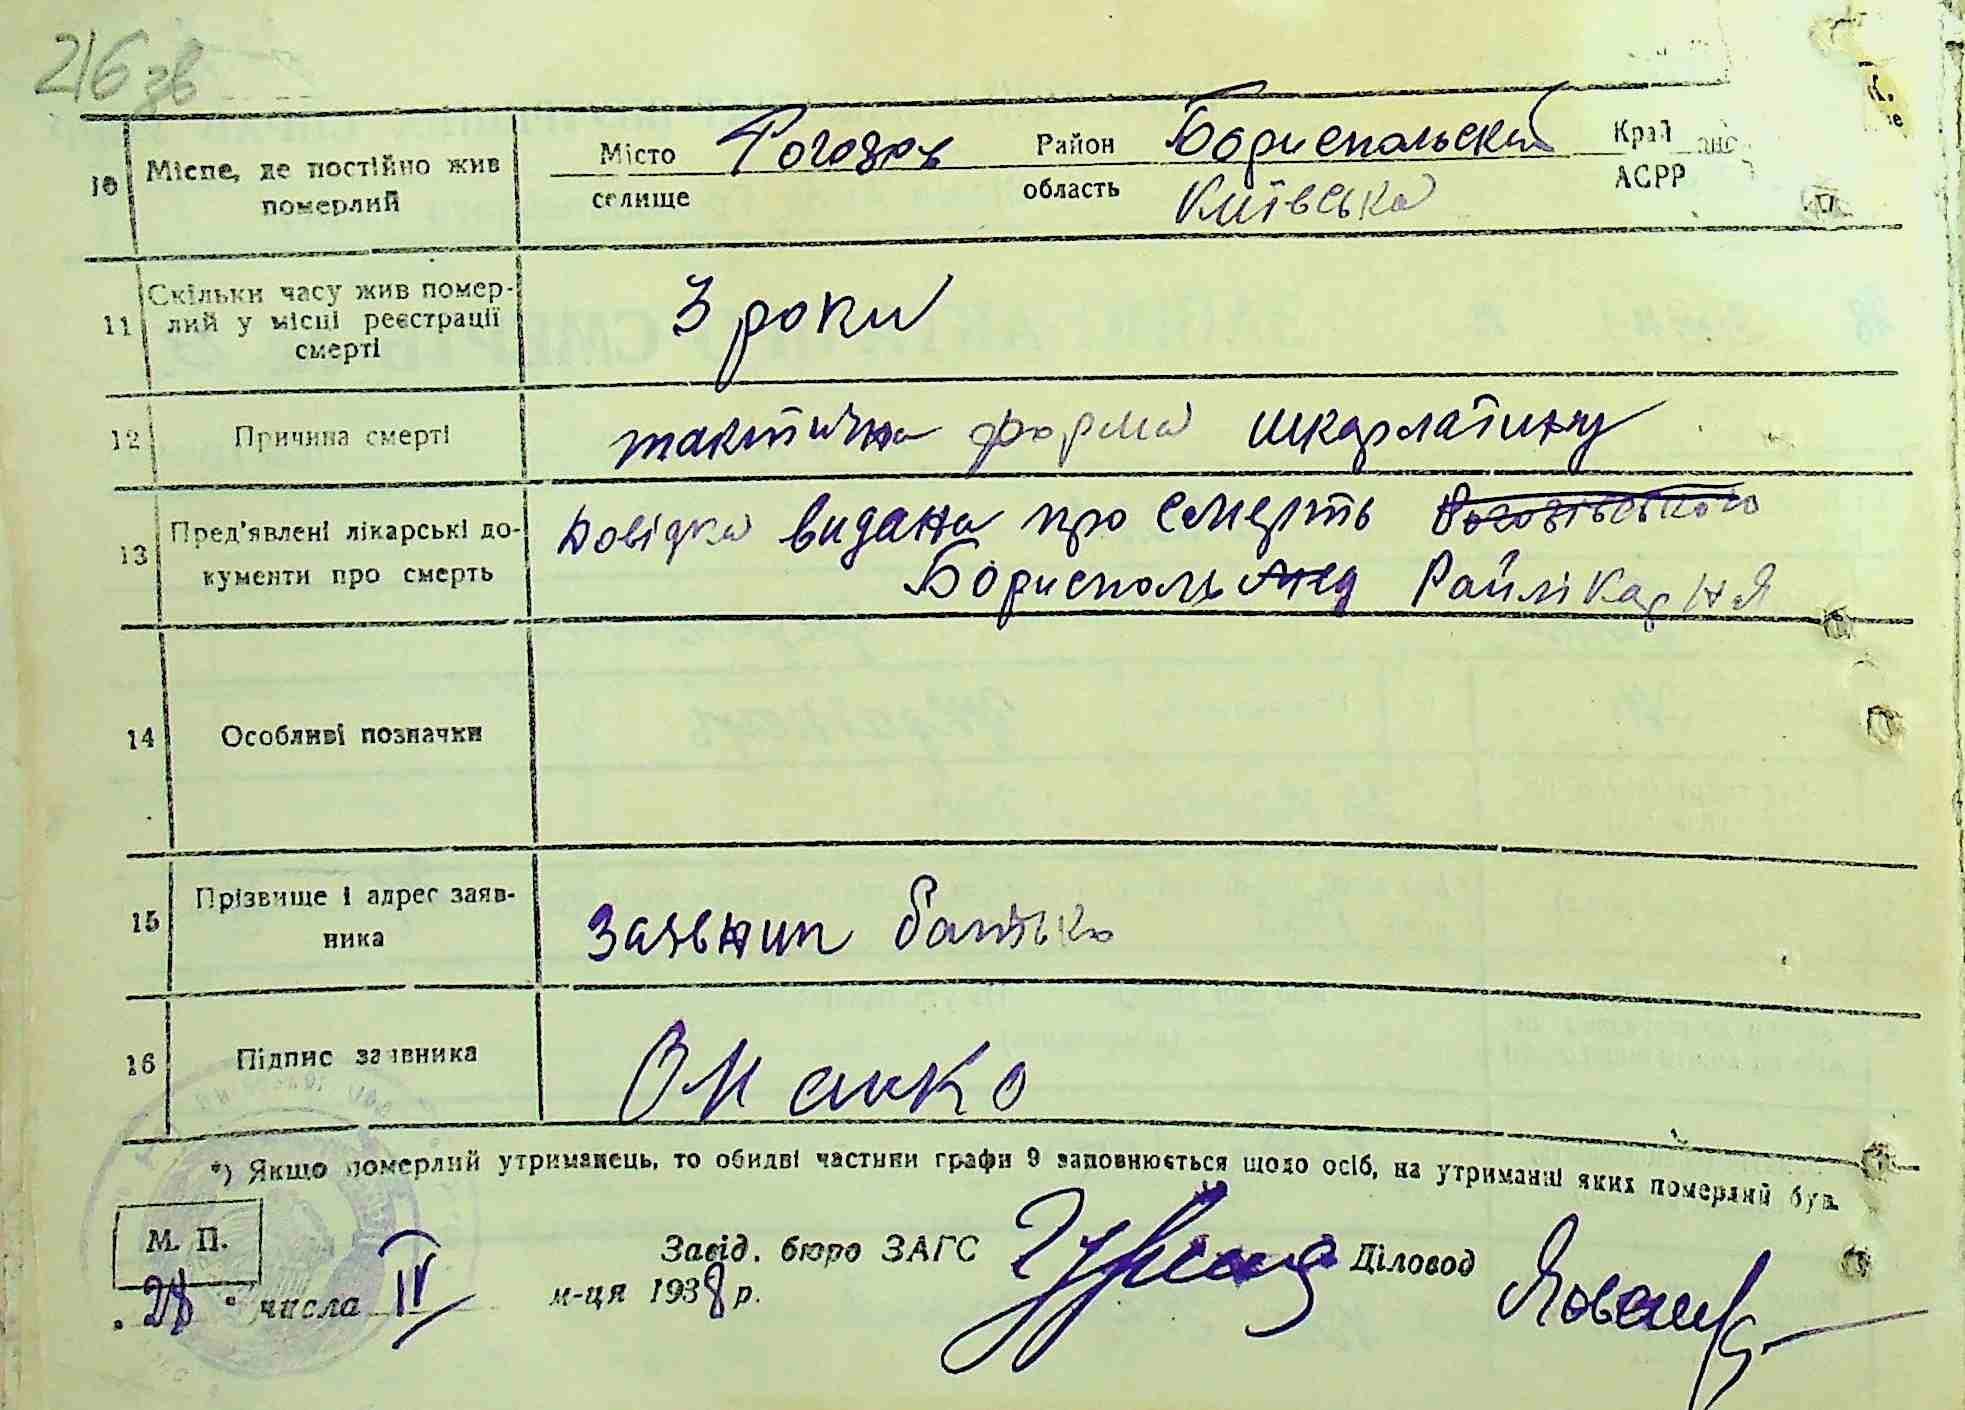 216 зв
10 Місце, де постійно жив померлий
Місто Рогозов Район Бориспольский Край
селище область Київська АСРР
11 Скільки часу жив померлий у місці реєстрації смерті
3 роки
12 Причина смерті
форма шкарлатину
13 Пред'явлені лікарські документи про смерть
Довідка видана про смерть Рогозівського
Бориспольмед Райлікарня
14 Особливі позначки
15 Прізвище і адрес заявника
Заявнип батько
16 Підпис заявника
*) Якщо померлий утриманець, то обидві частини графи 9 заповнюється щодо осіб, на утриманні яких померлий був.
М. П.
Завід. бюро ЗАГС Діловод
"28" числа IV м-ця 1938 р.